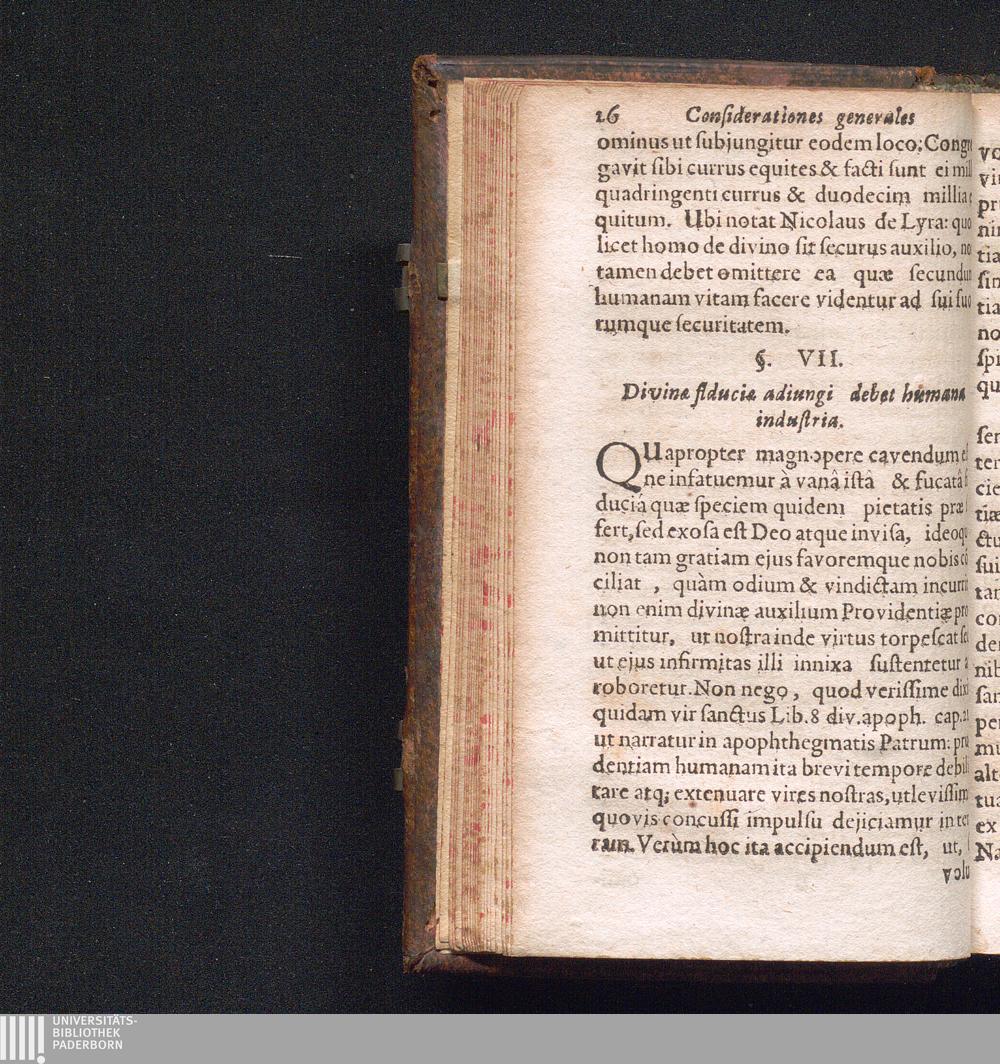 16 Conſiderationes generales
ominus ut ſubjungitur eodem loco; Congre
gavit ſibi currus equites & facti ſunt ei mill
quadringenti currus & duodecim millia e
quitum. Ubi notat Nicolaus de Lyra: quo
licet homo de divino ſit ſecurus auxilio, no
tamen debet omittere ea quæ ſecundum
humanam vitam facere videntur ad ſui ſuo
rumque ſecuritatem.
§. VII.
Divinæ fiduciæ adiungi debet humana
induſtria.
QUapropter magnopere cavendum eſ
ne infatuemur à vanâ iſtâ & fucatâ fi
duciâ quæ ſpeciem quidem pietatis præ
fert, ſed exoſa eſt Deo atque inviſa, ideoq;
non tam gratiam ejus favoremque nobis cō
ciliat , quàm odium & vindictam incurrit
non enim divinæ auxilium Providentiæ pro
mittitur, ut noſtra inde virtus torpeſcat ſe
ut ejus infirmitas illi innixa ſuſtentetur a
roboretur. Non nego , quod veriſſime dixi
quidam vir ſanctus Lib. 8 div. apoph. cap. 21
ut narratur in apophthegmatis Patrum: pru
dentiam humanam ita brevi tempore debili
tare atq; extenuare vires noſtras, ut leviſſim
quovis concuſſi impulſu dejiciamur in ter
ram. Verùm hoc ita accipiendum eſt, ut,
volu
vi
pri
nin
tia
ſin
tia
no
ſpi
qu
ſer
ter
cie
tiæ
ctu
ſui
tan
co
de
nib
ſan
per
mu
alt
tua
ex
Na
UNIVERSITÄTS-
BIBLIOTHEK
PADERBORN